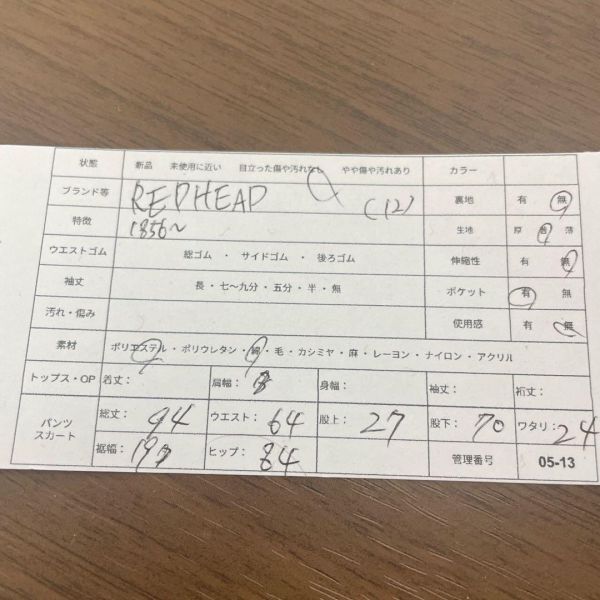 状態 新品 未使用に近い 目立った傷や汚れなし やや傷や汚れあり カラー
ブランド等 REDHEAD (12) 裏地 有 無
特徴 1856~ 生地 厚 普 薄
ウエストゴム 総ゴム ・ サイドゴム ・ 後ろゴム 伸縮性 有 無
袖丈 長・七〜九分・五分・半・無 ポケット 有 無
汚れ・傷み 使用感 有 無
素材 ポリエステル・ポリウレタン・綿・毛・カシミヤ・麻・レーヨン・ナイロン・アクリル
トップス・OP 着丈: 肩幅: 身幅: 袖丈: 裄丈:
パンツ スカート 総丈: 94 ウエスト: 64 股上: 27 股下: 70 ワタリ: 24
裾幅: ヒップ: 84 管理番号 05-13